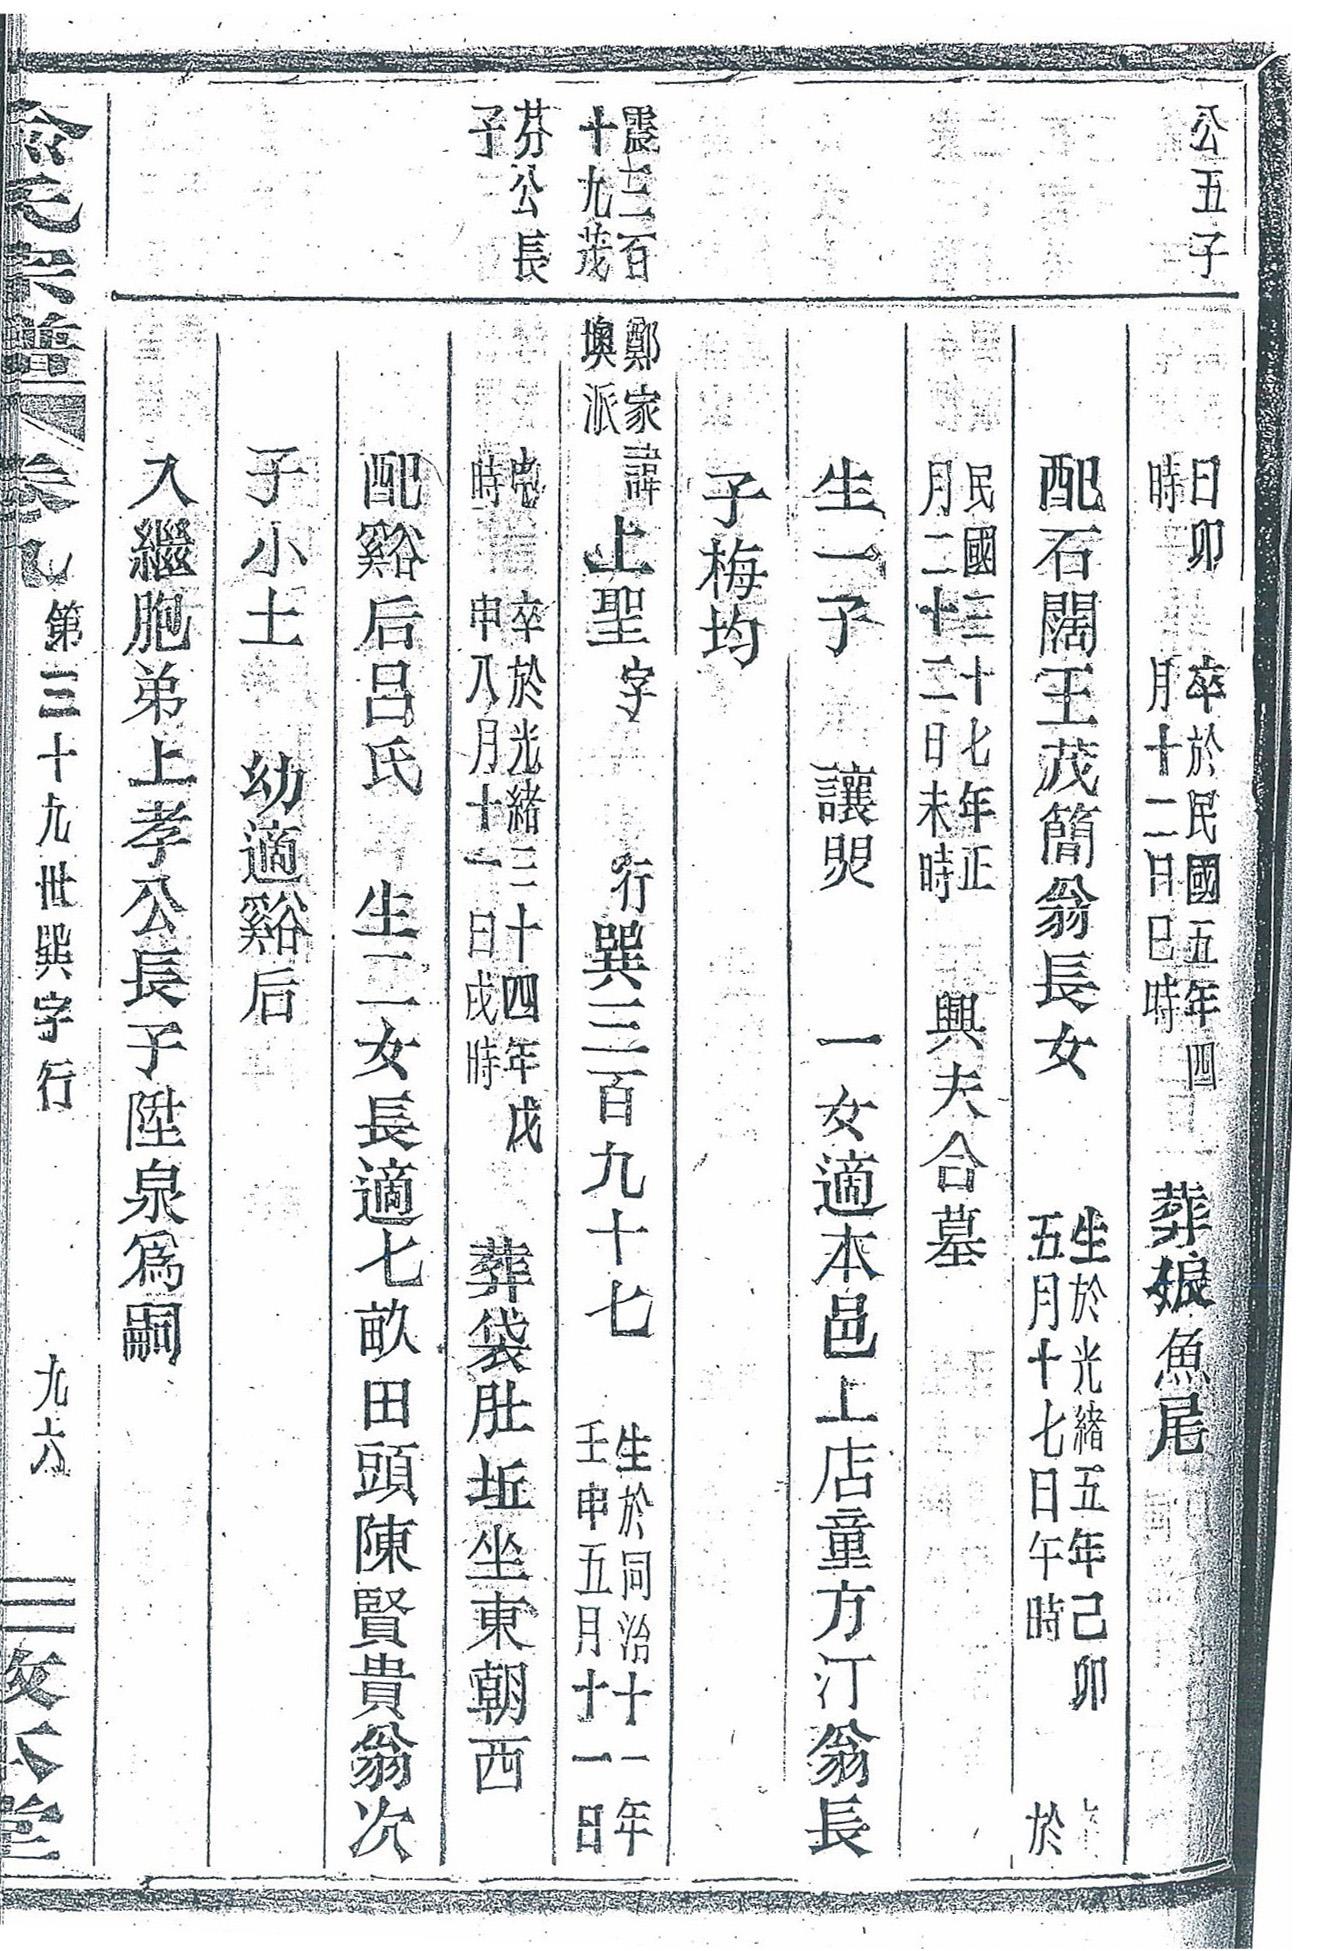 公五子
日卯時 卒於民國五年四月十二日巳時 葬娘魚尾
配石闊王茂簡翁長女 生於光緒五年己卯五月十七日午時 於
民國三十七年正月二十二日未時 興夫合墓
生一子 讓煚 一女適本邑上店童方汀翁長
子梅均
震三百十九茂
芬公長子
鄭家墺派 諱上聖 字 行巽三百九十七 生於同治十一年壬申五月十一日
時 卒於光緒三十四年戊申八月十一日戌時 葬袋肚坵坐東朝西
配谿后呂氏 生二女長適七畝田頭陳賢貴翁次
子小土 幼適谿后
入繼胞弟上孝公長子陞泉爲嗣
俞氏宗譜 卷九 第三十九世巽字行 九十八 三 堂